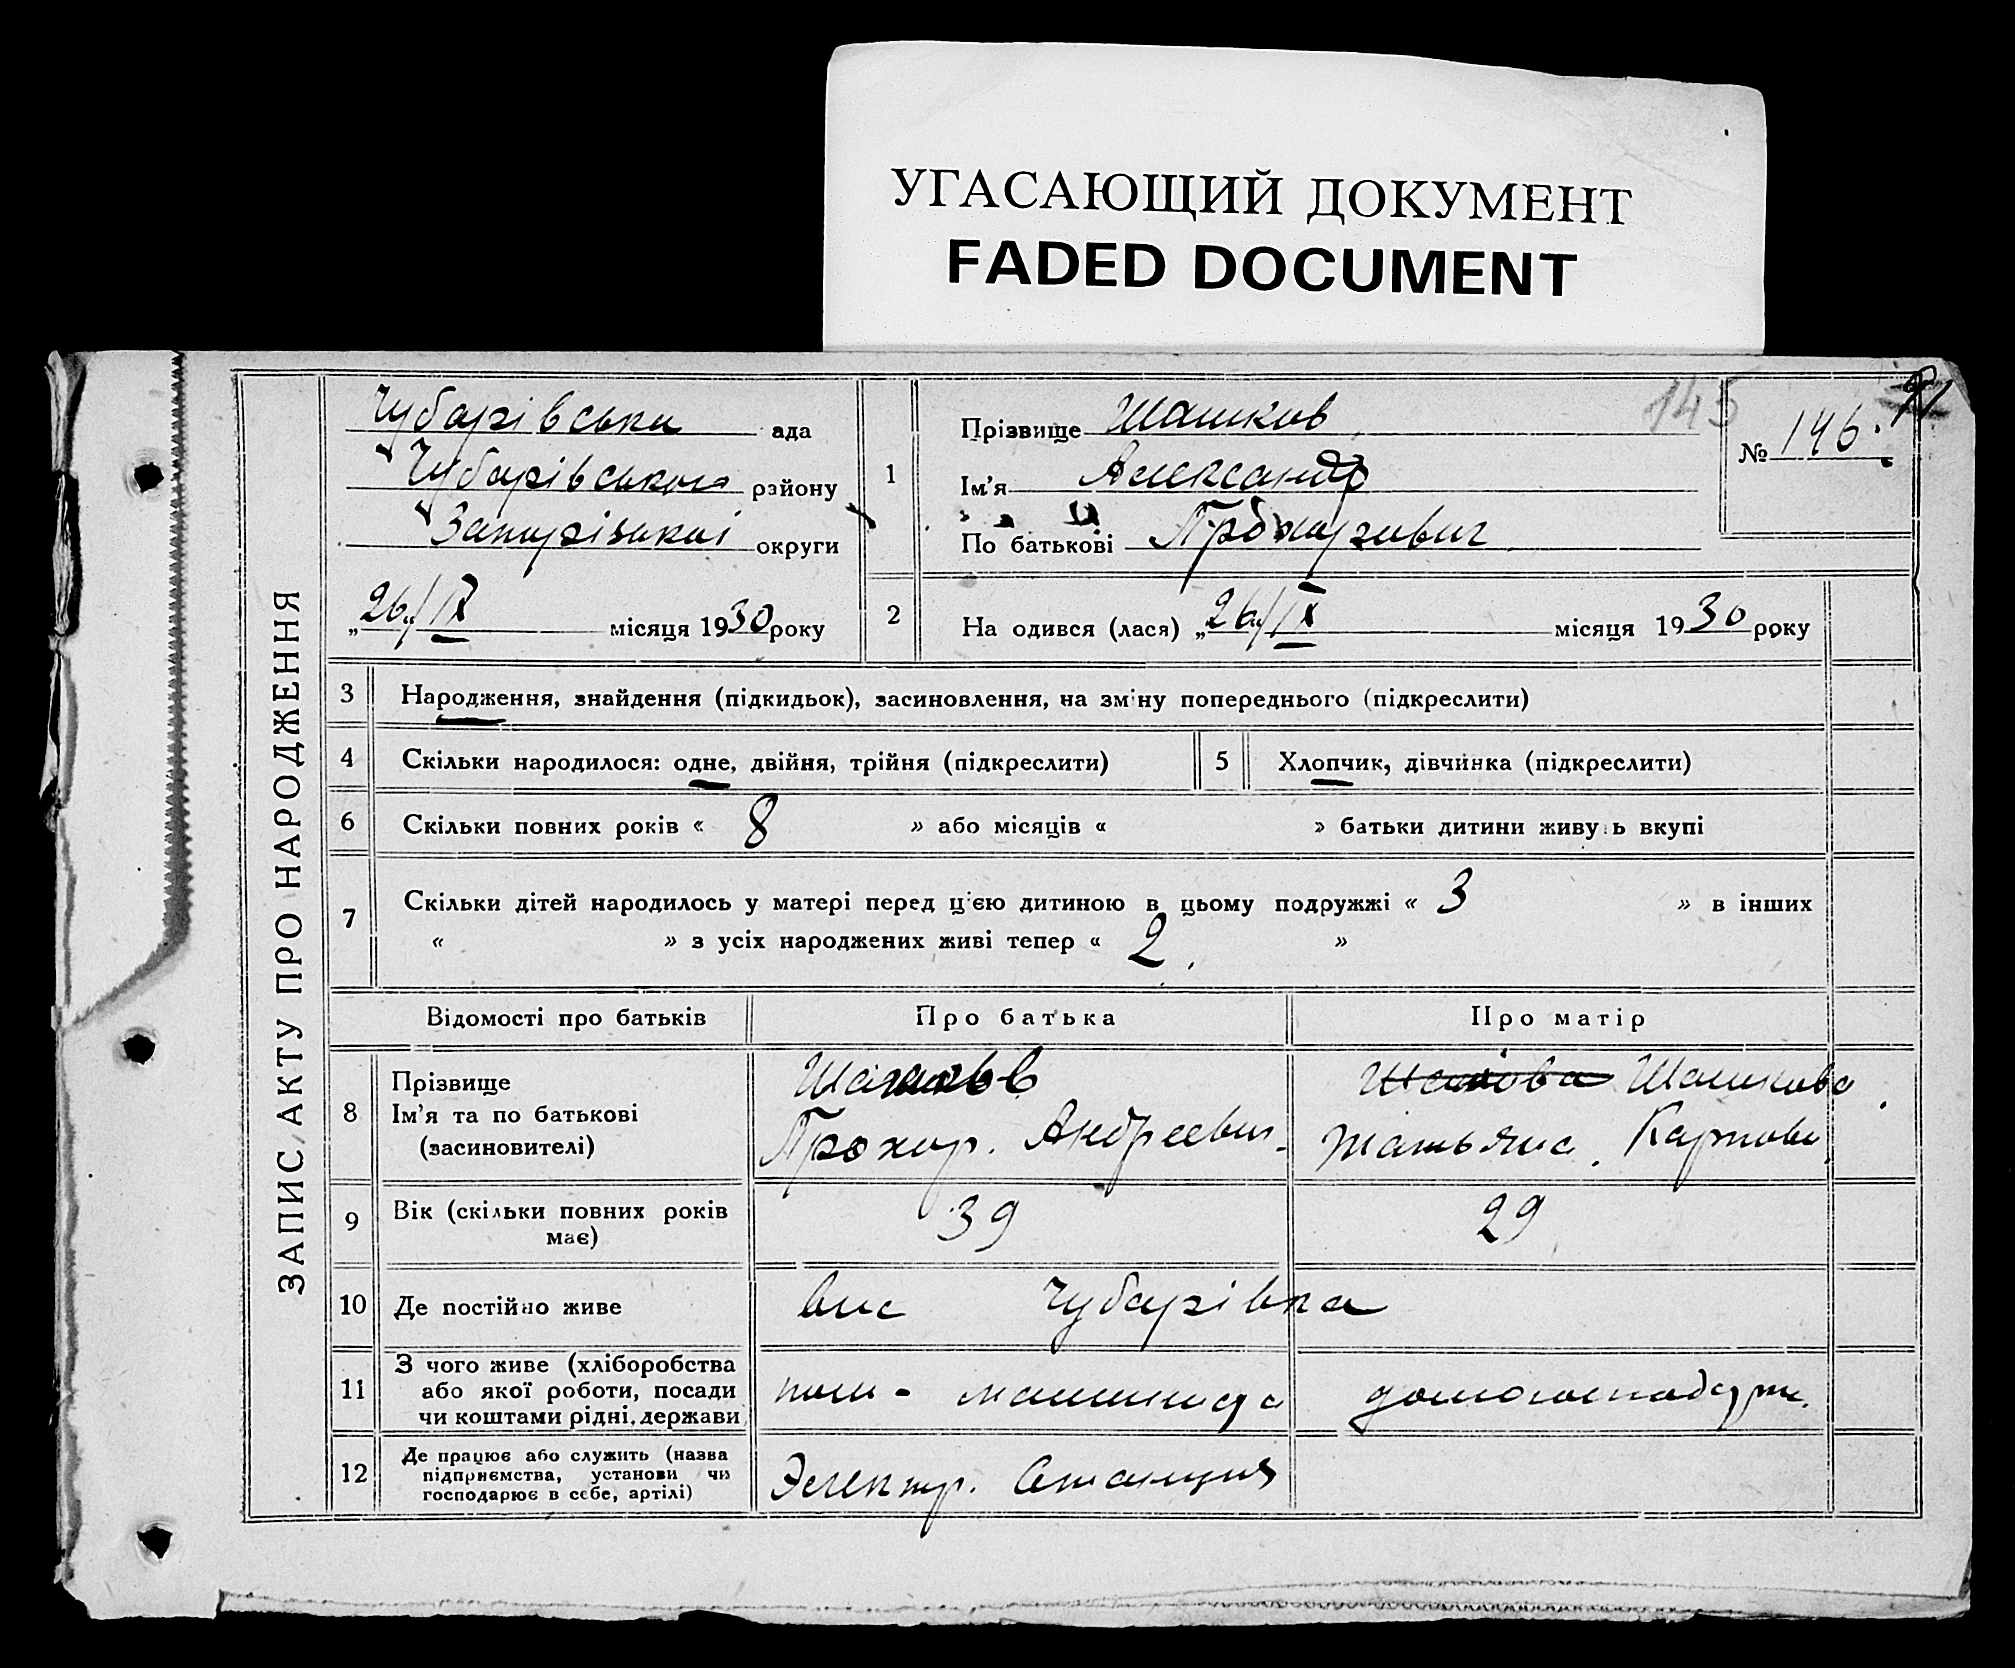 УГАСАЮЩИЙ ДОКУМЕНТ
FADED DOCUMENT
ЗАПИС АКТУ ПРО НАРОДЖЕННЯ
Чубарівська ада
Чубарівського району
Запорізької округи
„26/IX місяця 1930 року
1
Прізвище Шашков
Ім'я Александр
По батькові Прохорович
145
№ 146.
2
На одився (лася) „26/IX місяця 1930 року
3 Народження, знайдення (підкидьок), засиновлення, на зміну попереднього (підкреслити)
4 Скільки народилося: одне, двійня, трійня (підкреслити)
5 Хлопчик, дівчинка (підкреслити)
6 Скільки повних років « 8 » або місяців « » батьки дитини живуть вкупі
7 Скільки дітей народилось у матері перед цією дитиною в цьому подружжі « 3 » в інших
« » з усіх народжених живі тепер « 2. »
Відомості про батьків Про батька Про матір
8 Прізвище
Ім'я та по батькові
(засиновителі)
Шашков
Прохор. Андреевич.
Шашкова
Татьяна. Карповн.
9 Вік (скільки повних років
має)
39 29
10 Де постійно живе Чубарівка
11 З чого живе (хліборобства
або якої роботи, посади
чи коштами рідні, держави
пом- машиниста домогосподарк.
12 Де працює або служить (назва
підприємства, установи чи
господарює в себе, артілі)
Электр. Станция